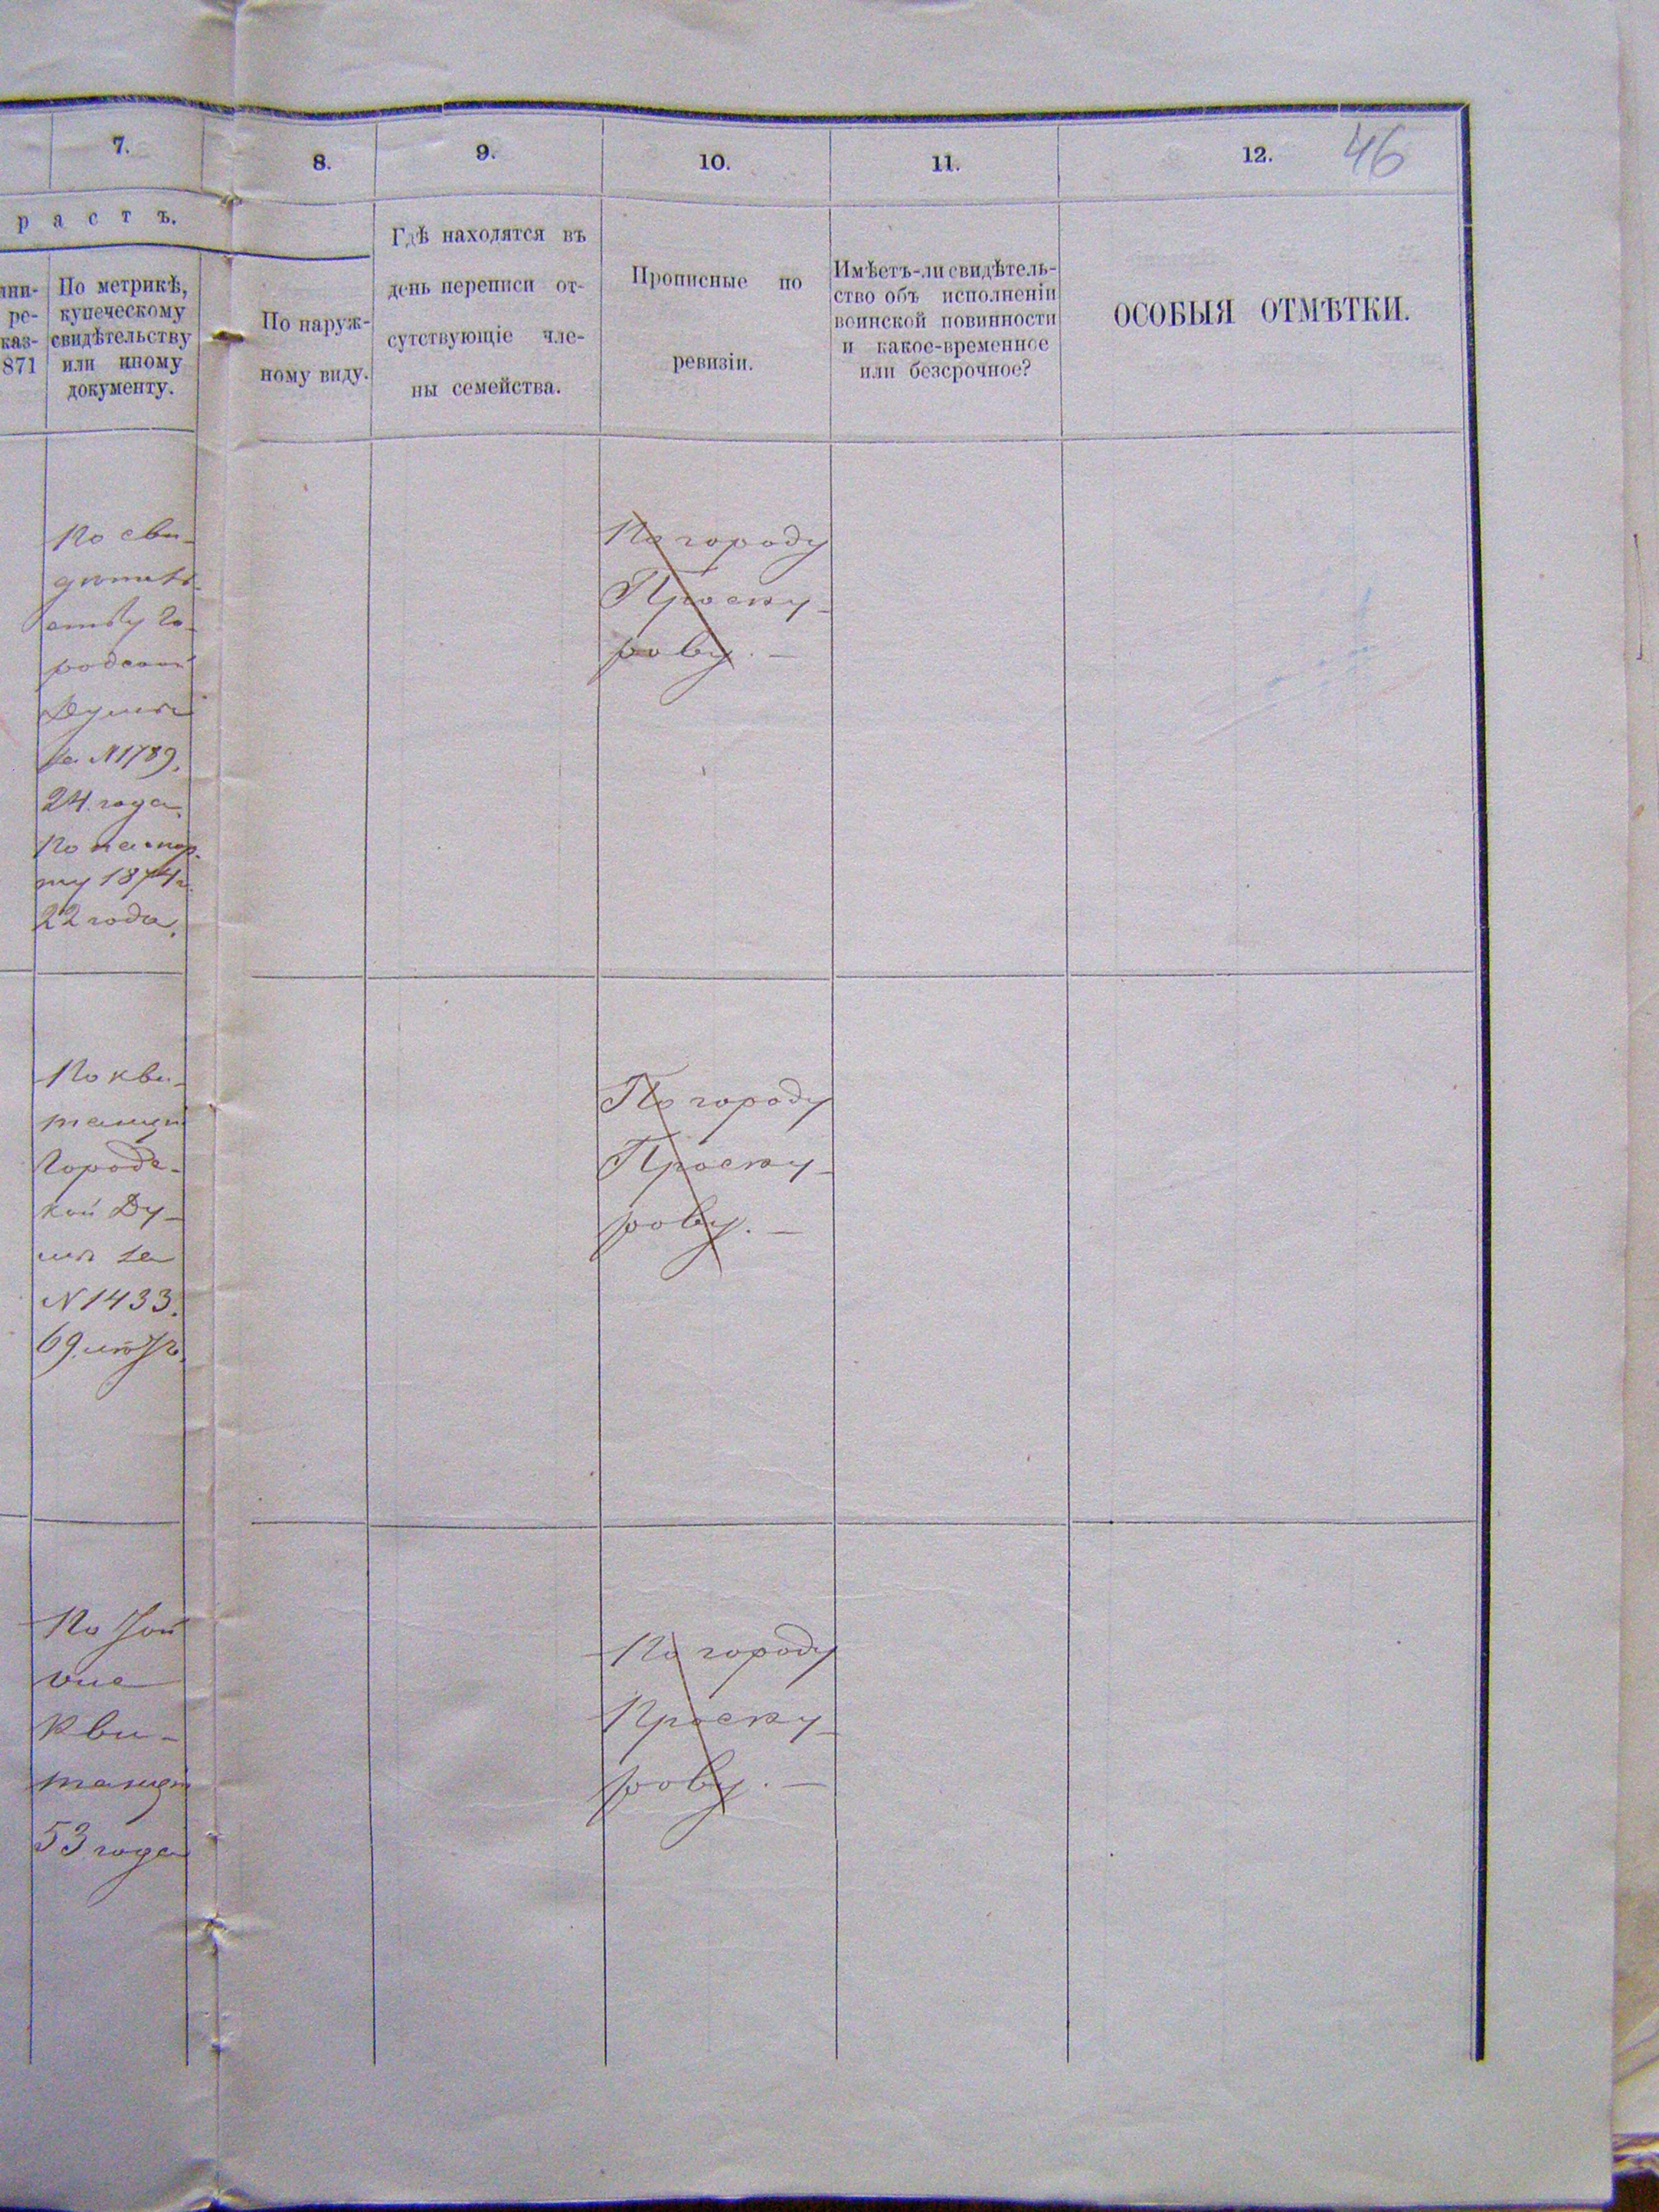 7.
8.
9.
10.
11.
12.
46
р а с т ъ.
ре-
каз-
871
По метрикѣ,
купеческому
свидѣтельству
или иному
документу.
По наруж-
ному виду.
Гдѣ находятся въ
день переписи от-
сутствующіе чле-
ны семейства.
Прописные по
ревизіи.
Имѣетъ-ли свидѣтель-
ство объ исполненіи
воинской повинности
и какое-временное
или безсрочное?
ОСОБЫЯ ОТМѢТКИ.
По сви-
дѣтель-
ству Го-
родской
Думы
за №1789.
24 года.
По паспор-
ту 1874 г.
22 года.
По городу
Проску-
рову. —
По кви-
танціи
Городс-
кой Ду-
мы за
№1433.
69
По городу
Проску-
рову. —
По
кви-
танціи
53 года
По городу
Проску-
рову. —